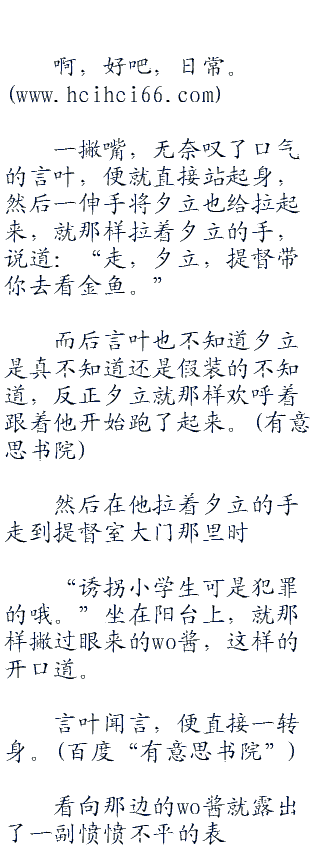 啊，好吧，日常。
(www.hcihci66.com)
一撇嘴，无奈叹了口气
的言叶，便就直接站起身，
然后一伸手将夕立也给拉起
来，就那样拉着夕立的手，
说道：“走，夕立，提督带
你去看金鱼。”
而后言叶也不知道夕立
是真不知道还是假装的不知
道，反正夕立就那样欢呼着
跟着他开始跑了起来。(有意
思书院)
然后在他拉着夕立的手
走到提督室大门那里时
“诱拐小学生可是犯罪
的哦。”坐在阳台上，就那
样撇过眼来的wo酱，这样的
开口道。
言叶闻言，便直接一转
身。(百度“有意思书院”)
看向那边的wo酱就露出
了一副愤愤不平的表